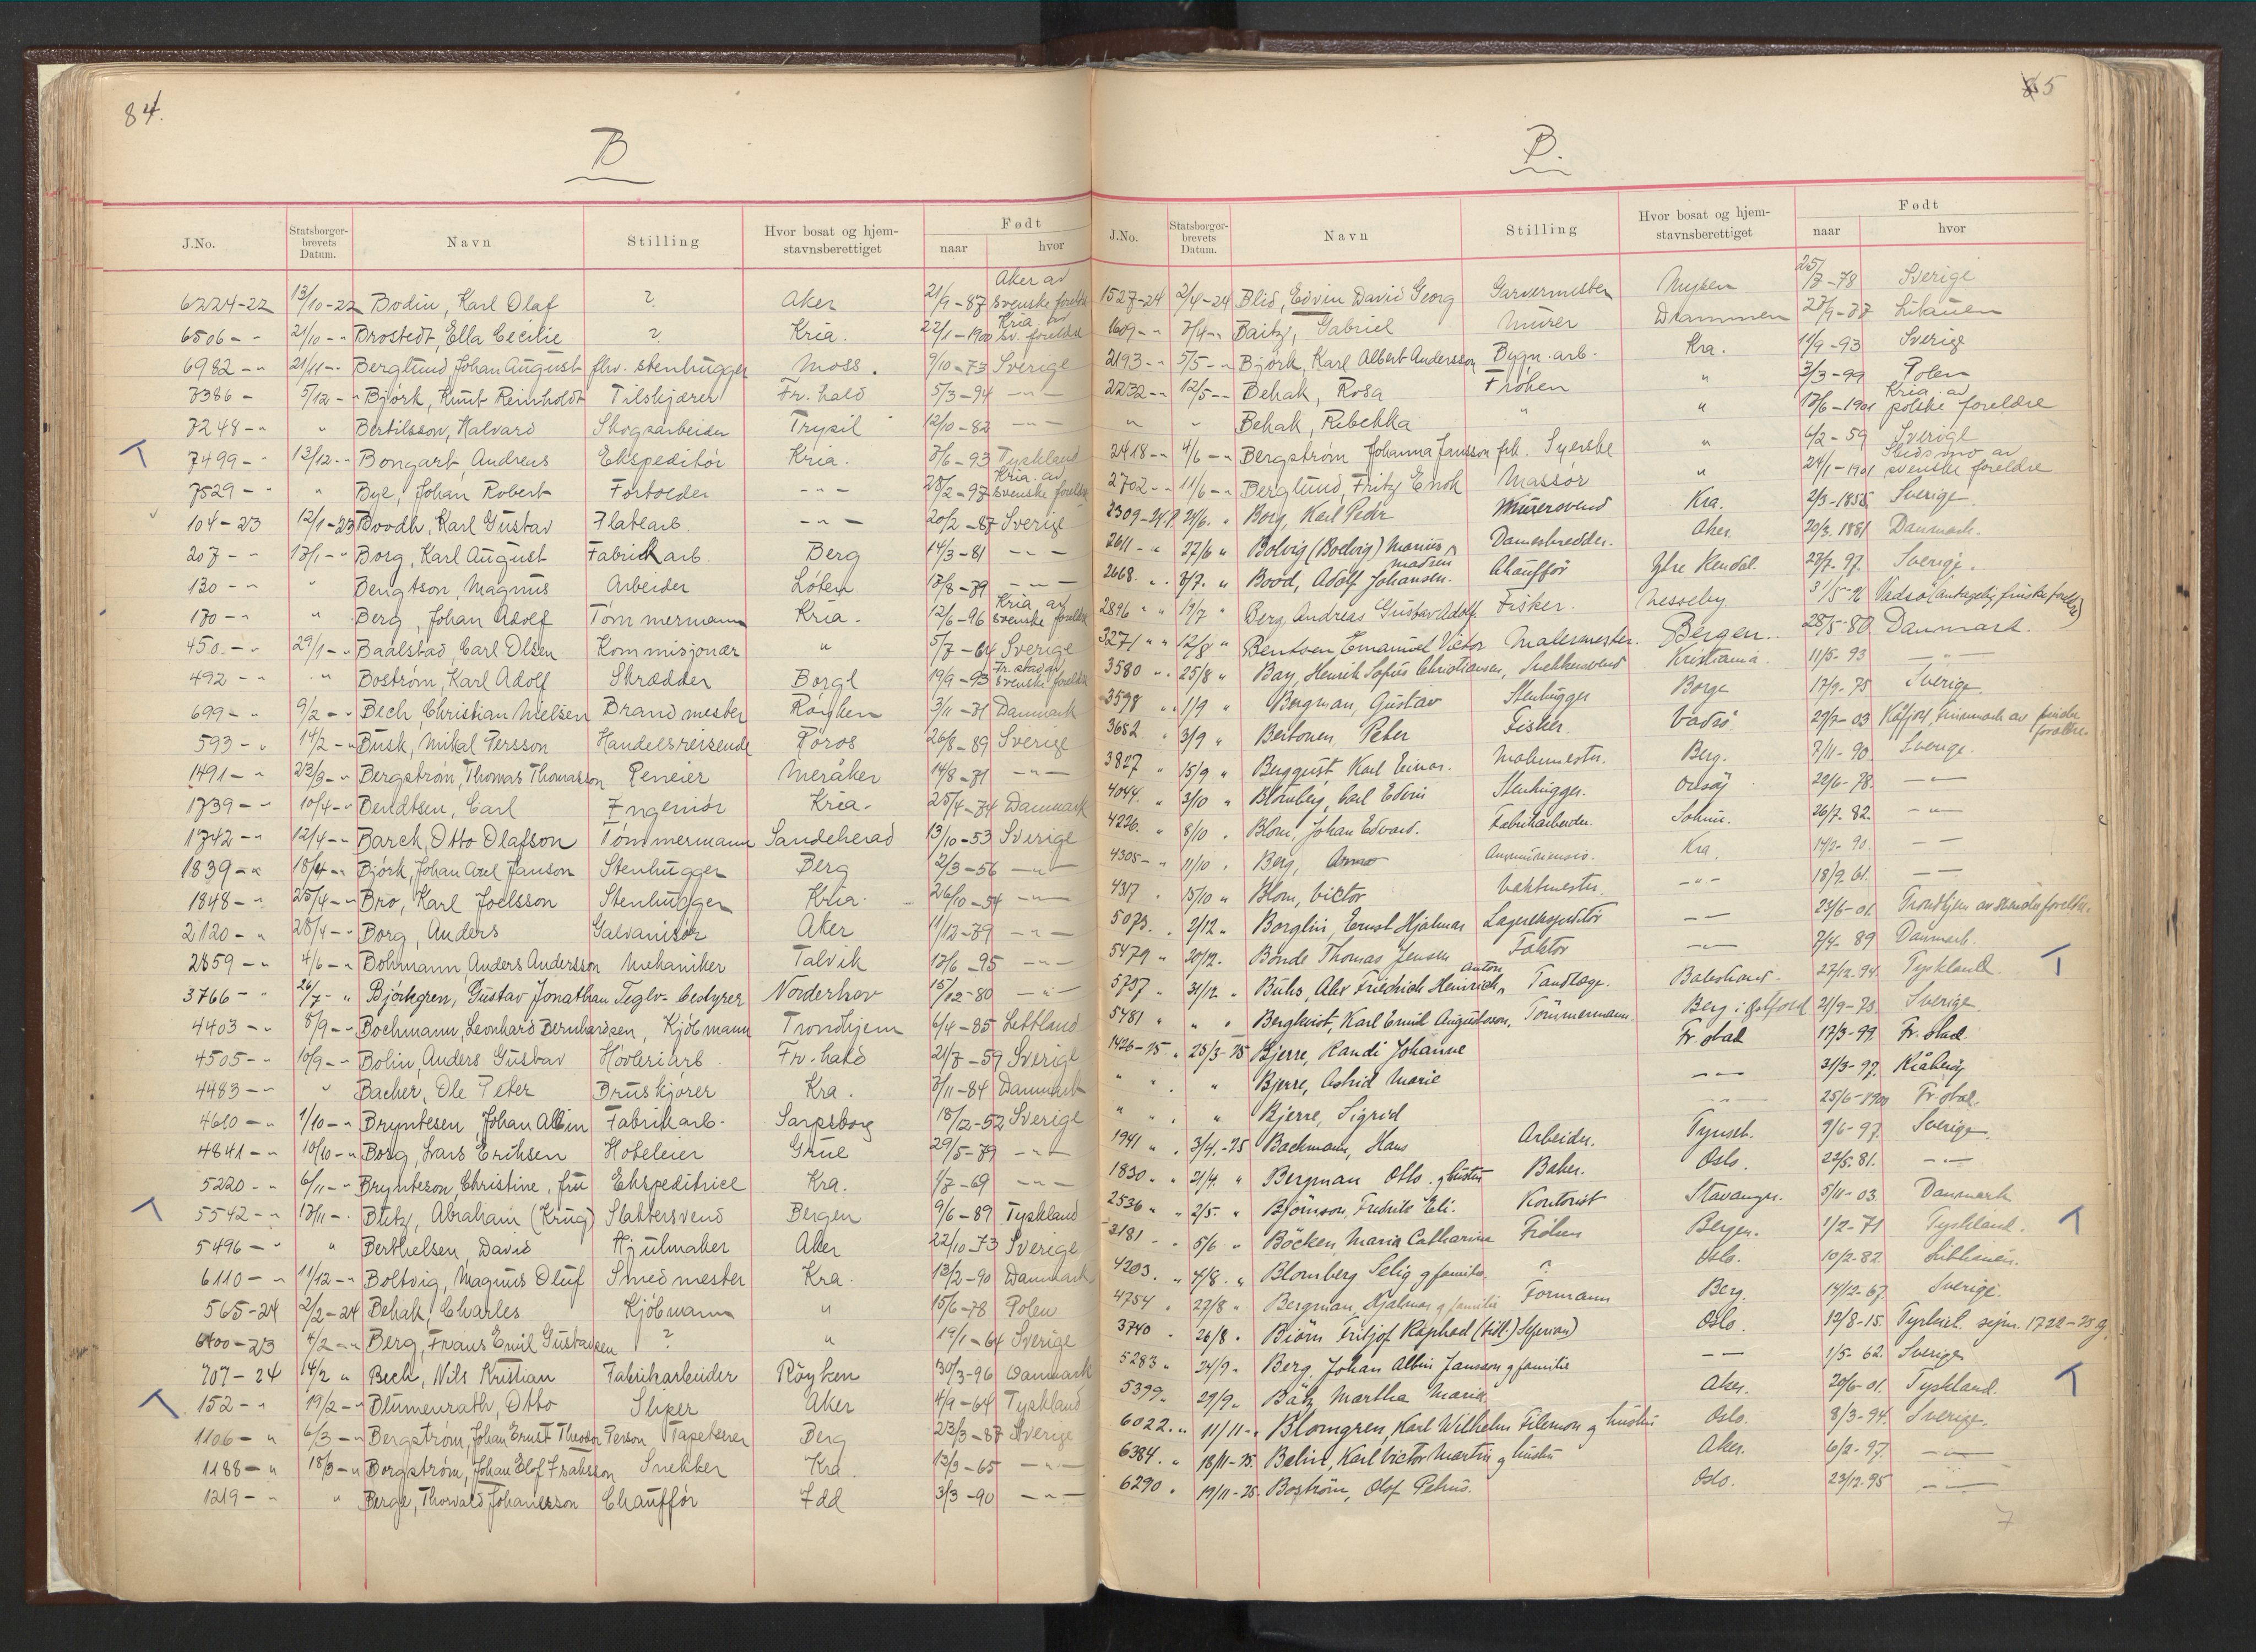 84.
B
J.No. Statsborger-brevets Datum. Navn Stilling Hvor bosat og hjem-stavnsberettiget Født naar hvor
6224-22 13/10-22 Bodin, Karl Olaf ? Aker 21/9-87 Aker av svenske foreldre
6506 - - 21/10 - - Brostedt, Ella Cecilie ? Kria. 22/1-1900 Kria. av sv. foreldre
6982 - " 21/11 - - Berglund, Johan August fhv. stenhugger Moss. 9/10-73 Sverige
7386 - 5/12 - " Björk, Knut Reinholdt Tilskjærer Fr.hald 5/3-94 - " -
7248 - " " Bertilsson, Halvard Skogsarbeider Trysil 12/10-82 - " -
T 7499 - - 13/12 - - Bongart Andreas Ekspeditör Kria. 7/6-93 Tyskland
7529 - - " Bye, Johan Robert Fortolder - " - 28/2-97 Kria. av svenske foreldre
104-23 12/1-23 Boodh, Karl Gustav Platearb. - " - 20/2-87 Sverige
207 - - 17/1 - " Borg, Karl August Fabrikarb. Berg 14/3-81 - " -
130 - " " Bengtson, Magnus Arbeider Löten 17/8-79 - " -
170 - " " Berg, Johan Adolf Tömmermann Kria. 12/6-96 Kria av svenske foreldre
450. - " 29/1 - " Baalstad, Carl Olsen Kommisjonær " 5/7-64 Sverige
492 - " " Boström, Karl Adolf Skrædder Borge 19/9-93 Fr.stad av svenske foreldre
699 - " 9/2 - " Bech Christian Nielsen Brandmester Röyken 3/11-71 Danmark
593 - " 14/2 - " Busk, Mikal Persson Handelsreisende Röros 26/8-89 Sverige
1491 - " 23/3 - " Bergström, Thomas Thomasson Peneier Meråker 14/8-71 - " -
1739 - - 10/4 - " Bendtsen, Carl Ingeniör Kria. 25/4-74 Danmark
1742 - " 12/4 - " Barck, Otto Olafson Tömmermann Sandeherad 13/10-53 Sverige
1839 - " 18/4 - " Björk, Johan Axel Janson Stenhugger Berg 2/3-56 - " -
1848 - " 25/4 - " Bro, Karl Joelsson Stenhugger Kria. 26/10-54 - " -
2120 - " 28/4 - " Borg, Anders Galvanisör Aker 11/12-79 - " -
2859 - " 4/6 - " Bohmann Anders Andersson Mekaniker Talvik 17/6-95 - " -
3766 - " 26/7 - " Björkgren, Gustav Jonathan Teglv- bestyrer Norderhov 15/12-80 - " -
4403 - " 8/9 - " Bochmann, Leonhard Bernhardsen, Kjöbmann Trondhjem 6/4-85 Lettland
4505 - - 10/9 - " Bolin, Anders Gustav Hövleriarb. Fr.hald 21/7-59 Sverige
4483 - " " Bacher, Ole Peter Bruskjörer Kra. 7/11-84 Danmark
4610 - " 1/10 - " Bryntesen, Johan Albin Fabrikarb. Sarpsborg 18/12-52 Sverige
4841 - " 10/10 - " Borg, Lars Eriksen Hoteleier Grue 29/5-79 - " -
5220 - " 6/11 - " Brynteson, Christine, fru Ekspeditrice Kra. 1/7-69 - " -
T 5542 - " 13/11 - . Blitz, Abraham (Krug) Slaktersvend Bergen 9/6-89 Tyskland
5496 - " " Berthelsen, David Hjulmaker Aker 22/10-73 Sverige
6110 - " 11/12 - " Boltvig, Magnus Oluf Smedmester Kra. 13/2-90 Danmark
565-24 2/2-24 Behak, Charles Kjöbmann " 15/6-78 Polen
6400-23 4/2 - " Berg, Frans Emil Gustavsen ? " 19/1-64 Sverige
707-24 14/2 " Bech, Nils Kristian Fabrikarbeider Röyken 30/3-96 Danmark
T 152 - " 19/2 - " Blumenrath, Otto Sliper Aker 4/9-64 Tyskland
1106 - " 6/3 - " Bergström, Johan Ernst Theodor Person Tapetserer Berg 23/3-87 Sverige
1188 - " 18/3 - " Borgström, Johan Elof Isaksson Snekker Kra 13/3-65 - " -
1219 - - " Berge, Thorvald Johanesson Chaufför Idd 3/3-90 - " -
85
B.
J.No. Statsborger-brevets Datum. Navn Stilling Hvor bosat og hjem-stavnsberettiget Født naar hvor
1527-24 2/4-24 Blid, Edvin David Georg Garvermester Mysen 25/7-78 Sverige
1609 - " 7/4 - " Baitz, Gabriel Murer Drammen 27/9-87 Litauen
2193 - " 5/5 - " Björk, Karl Albert Andersson Bygn.arb. Kra. 11/9-93 Sverige
2232 - " 12/5 - - Behak, Rosa Fröken " 3/3-99 Polen
" " Behak, Rebekka " " 17/6-1901 Kria av polske foreldre
2418 - " 4/6 - " Bergström Johanna Jansson frk. Syerske " 6/2-59 Sverige
2702 - " 11/6 - " Berglund, Fritz Enok Massör " 24/1-1901 Skedsmo av svenske foreldre
2309-24 24/6. " Borg, Karl Peder Murersvend Kra. 2/3-1855 Sverige
2611 - " 27/6 " Bolvig (Boelvig) Marius Madsen Dameskredder. Aker. 20/3.1881 Danmark.
2668. " . 7/7. " Bood, Adolf Johansen. Chaufför Ytre Rendal. 27/7-97. Sverige.
2896 " " 19/7 " Berg Andreas Gustav Adolf. Fisker. Nesseby 31/5-76 Vadsö (antagelig finske foreldre)
3271 " " 12/8 " Bentsen Emanuel Victor Malermester. Bergen. 28/5-80 Danmark.
3580 " . 25/8 " Bay, Henrik Sofus Christiansen, Snekkersvend Kristiania. 11/5-93 - " -
3598 " " 1/9 " Bergman, Gustav Stenhugger Borge 17/9-75 Sverige.
3652 " 3/9 " Beitonen, Peter Fisker. Vadsö 29/7-03 Kåfjord, Finnmark av finske foreldre.
3827 " 15/9 " Bergquist, Karl Einar. Malermester. Berg. 7/11-90. Sverige.
4044. " 3/10 " Blomberg, Carl Edvin Stenhugger. Onsöy 22/6-78. - " -
4226. " 8/10 . Blom, Johan Edvard. Fabrikarbeider. Solum. 26/7.82. - " -
4305 - " 11/10 . Berg, Kra. 14/2-90. - -
4317 . 15/10 " Blom, Victor Vaktmester - " - 18/9.61. - -
5073. . 2/12 " Borglin, Ernst Hjalmar Lagerekspeditör - - 23/6-01. Trondhjem av svenske foreldre.
5479 " 20/12. Bonde Thomas Jensen Faktor - " - 7/4-89 Danmark.
5797 " 31/12 . Buhs, Alex Friedrich Heinrich Anton Tandlæge. Balestrand. 27/12.94. Tyskland. T
5481 " " " Bergkvist, Karl Emil Augustsson, Tömmermann. Berg i Østfold 21/9-75. Sverige.
1426-25 " 23/3-25 Bjerre, Randi Johanne Fr.stad 17/3-99. Fr.stad.
" " . " Bjerre, Astrid Marie - - 31/3-97. Kråkeröy
" " . " Bjerre, Sigrid - - 25/6-1900 Fr.stad.
1941 " . 3/4.-25 Backmann, Hans Arbeider. Tynset. 9/6-97. Sverige.
1830. " . 21/4. " Bergman Otto. g hustru Baker. Oslo. 22/5.81. - " -
2536 " " 2/5. " Björnson, Fredrik Eli. Kontorist Stavanger. 5/11-03. Danmark
3181 - . 5/6 " Böcken, Maria Catharina Fröken Bergen. 1/2-71 Tyskland. T
4203. " 4/8. " Blomberg Selig g familie. ? Oslo. 10/2-82. Litthauen.
4754 " 27/8 " Bergman, Hjalmar g familie Formann Berg. 14/12-67. Sverige.
3740 . 26/8 . Biörn Fritjof Raphael (tidl.) Seferian) Oslo. 12/8-15. Tyrkiet. sejm. 1722-25 g.
5283 " 24/9 - Berg, Johan Albin Jansson g familie - - 1/5-62. Sverige
5399. 29/9. Bätz, Martha Maria Aker. 20/6-01. Tyskland. T
6022 " " 11/11 - " Blomgren, Karl Wilhelm Filemon g hustru Oslo. 8/3-94. Sverige.
6384. " 18/11-25 Balin, Karl Victor Martin g hustru Aker. 6/2-97. - " -
6290 " 19/11-25. Boström, Olof Petrus. Oslo. 23/12-95 - " -
7